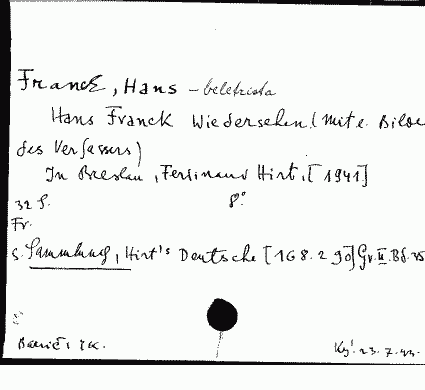 Franck, Hans - beletrista
Hans Franck Wiedersehen. (Mit e. Bilde
des Verfassers)
In Breslau, Ferdinand Hirt, [1941]
32 S. 8°
Fr.
s. Sammlung, Hirt's Deutsche [168.290] Gr. II. Bd.
23.7.43.